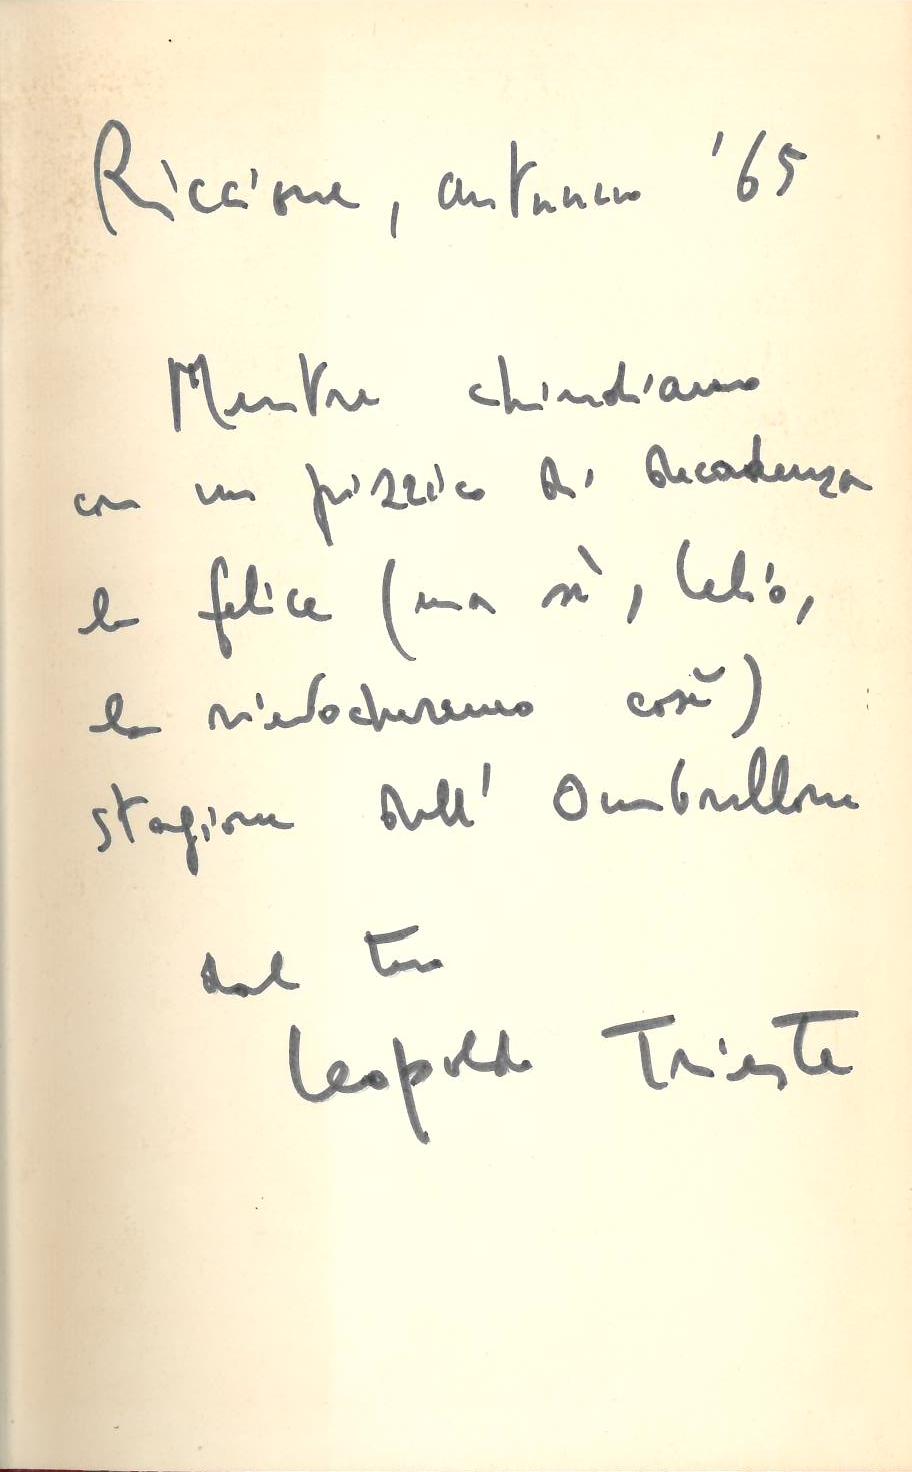 Riccione, autunno '65
Mentre chiudiamo
con un pizzico di decadenza
la felice (ma sì, Lelio,
la rievocheremo così)
stagione dell'Ombrellone
dal tuo
Leopoldo Trieste